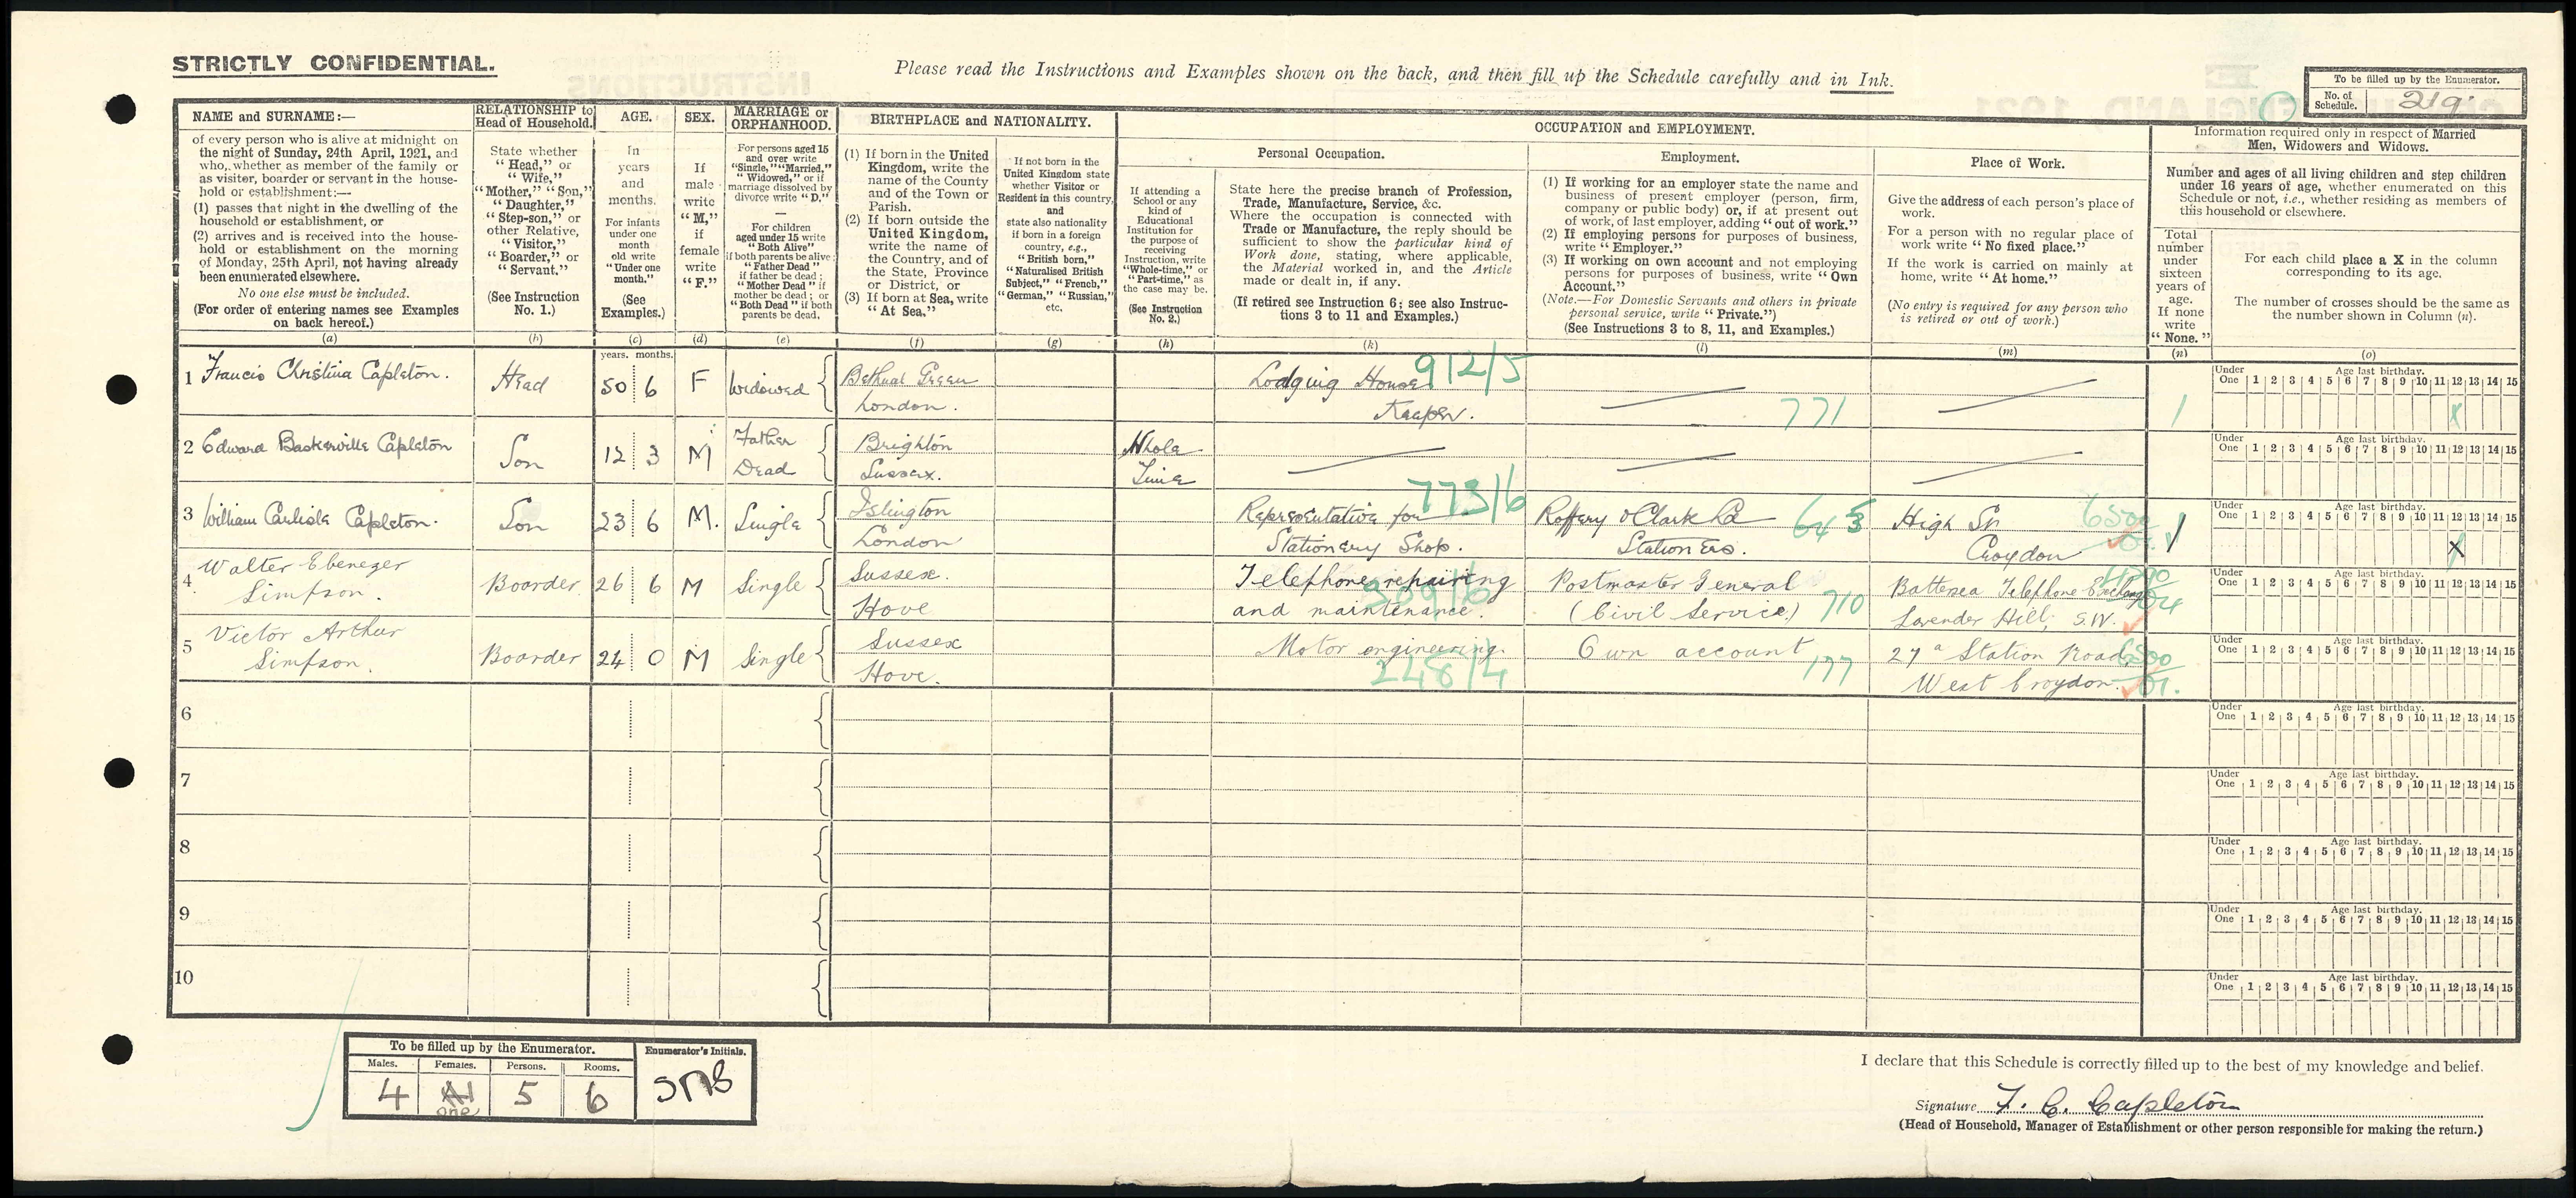 STRICTLY CONFIDENTIAL.
Please read the Instructions and Examples shown on the back, and then fill up the Schedule carefully and in Ink.
To be filled up by the Enumerator.
No. of Schedule. 219
NAME and SURNAME:—
of every person who is alive at midnight on
the night of Sunday, 24th April, 1921, and
who, whether as member of the family or
as visitor, boarder or servant in the house-
hold or establishment:—
(1) passes that night in the dwelling of the
household or establishment, or
(2) arrives and is received into the house-
hold or establishment on the morning
of Monday, 25th April, not having already
been enumerated elsewhere.
No one else must be included.
(For order of entering names see Examples
on back hereof.)
(a)
RELATIONSHIP to
Head of Household.
State whether
"Head," or
"Wife,"
"Mother," "Son,"
"Daughter,"
"Step-son," or
other Relative,
"Visitor,"
"Boarder," or
"Servant."
(See Instruction
No. 1.)
(b)
AGE.
In
years
and
months.
For infants
under one
month
old write
"Under one
month."
(See
Examples.)
(c)
years. months.
SEX.
If
male
write
"M."
if
female
write
"F."
(d)
MARRIAGE or
ORPHANHOOD.
For persons aged 15
and over write
"Single," "Married,"
"Widowed," or if
marriage dissolved by
divorce write "D."
—
For children
aged under 15 write
"Both Alive"
if both parents be alive;
"Father Dead"
if father be dead;
"Mother Dead" if
mother be dead; or
"Both Dead" if both
parents be dead.
(e)
BIRTHPLACE and NATIONALITY.
(1) If born in the United
Kingdom, write the
name of the County
and of the Town or
Parish.
(2) If born outside the
United Kingdom,
write the name of
the Country, and of
the State, Province
or District, or
(3) If born at Sea, write
"At Sea."
(f)
If not born in the
United Kingdom state
whether Visitor or
Resident in this country,
and
state also nationality
if born in a foreign
country, e.g.,
"British born,"
"Naturalised British
Subject," "French,"
"German," "Russian,"
etc.
(g)
OCCUPATION and EMPLOYMENT.
If attending a
School or any
kind of
Educational
Institution for
the purpose of
receiving
Instruction, write
"Whole-time," or
"Part-time," as
the case may be.
(See Instruction
No. 2.)
(h)
Personal Occupation.
State here the precise branch of Profession,
Trade, Manufacture, Service, &c.
Where the occupation is connected with
Trade or Manufacture, the reply should be
sufficient to show the particular kind of
Work done, stating, where applicable,
the Material worked in, and the Article
made or dealt in, if any.
(If retired see Instruction 6; see also Instruc-
tions 3 to 11 and Examples.)
(k)
Employment.
(1) If working for an employer state the name and
business of present employer (person, firm,
company or public body) or, if at present out
of work, of last employer, adding "out of work."
(2) If employing persons for purposes of business,
write "Employer."
(3) If working on own account and not employing
persons for purposes of business, write "Own
Account."
(Note.—For Domestic Servants and others in private
personal service, write "Private.")
(See Instructions 3 to 8, 11, and Examples.)
(l)
Place of Work.
Give the address of each person's place of
work.
For a person with no regular place of
work write "No fixed place."
If the work is carried on mainly at
home, write "At home."
(No entry is required for any person who
is retired or out of work.)
(m)
Information required only in respect of Married
Men, Widowers and Widows.
Number and ages of all living children and step children
under 16 years of age, whether enumerated on this
Schedule or not, i.e., whether residing as members of
this household or elsewhere.
Total
number
under
sixteen
years of
age.
If none
write
"None."
(n)
For each child place a X in the column
corresponding to its age.
The number of crosses should be the same as
the number shown in Column (n).
(o)
1 Francis Christina Capleton. Head 50 6 F Widowed Bethnal Green London. Lodging House Keeper. 912/5 771 1
Under One 1 2 3 4 5 6 7 8 9 10 11 12 13 14 15 Age last birthday.
x
2 Edward Baskerville Capleton Son 12 3 M Father Dead Brighton Sussex. Whole Time
Under One 1 2 3 4 5 6 7 8 9 10 11 12 13 14 15 Age last birthday.
3 William Carlisle Capleton. Son 23 6 M. Single Islington London Representative for Stationery Shop. 773/6 Roffery & Clark Ld Stationers. High St Croydon
Under One 1 2 3 4 5 6 7 8 9 10 11 12 13 14 15 Age last birthday.
X
4 Walter Ebenezer Simpson. Boarder 26 6 M Single Sussex. Hove Telephone repairing and maintenance. Postmaster General (Civil Service) 710 Battersea Telephone Exchange Lavender Hill, S.W.
Under One 1 2 3 4 5 6 7 8 9 10 11 12 13 14 15 Age last birthday.
5 Victor Arthur Simpson. Boarder 24 0 M Single Sussex Hove. Motor engineering. 248/4 Own account 177 27a Station Road, West Croydon.
Under One 1 2 3 4 5 6 7 8 9 10 11 12 13 14 15 Age last birthday.
6
Under One 1 2 3 4 5 6 7 8 9 10 11 12 13 14 15 Age last birthday.
7
Under One 1 2 3 4 5 6 7 8 9 10 11 12 13 14 15 Age last birthday.
8
Under One 1 2 3 4 5 6 7 8 9 10 11 12 13 14 15 Age last birthday.
9
Under One 1 2 3 4 5 6 7 8 9 10 11 12 13 14 15 Age last birthday.
10
Under One 1 2 3 4 5 6 7 8 9 10 11 12 13 14 15 Age last birthday.
To be filled up by the Enumerator.
Males. Females. Persons. Rooms.
4 one 5 6
Enumerator's Initials.
I declare that this Schedule is correctly filled up to the best of my knowledge and belief.
Signature F. C. Capleton
(Head of Household, Manager of Establishment or other person responsible for making the return.)